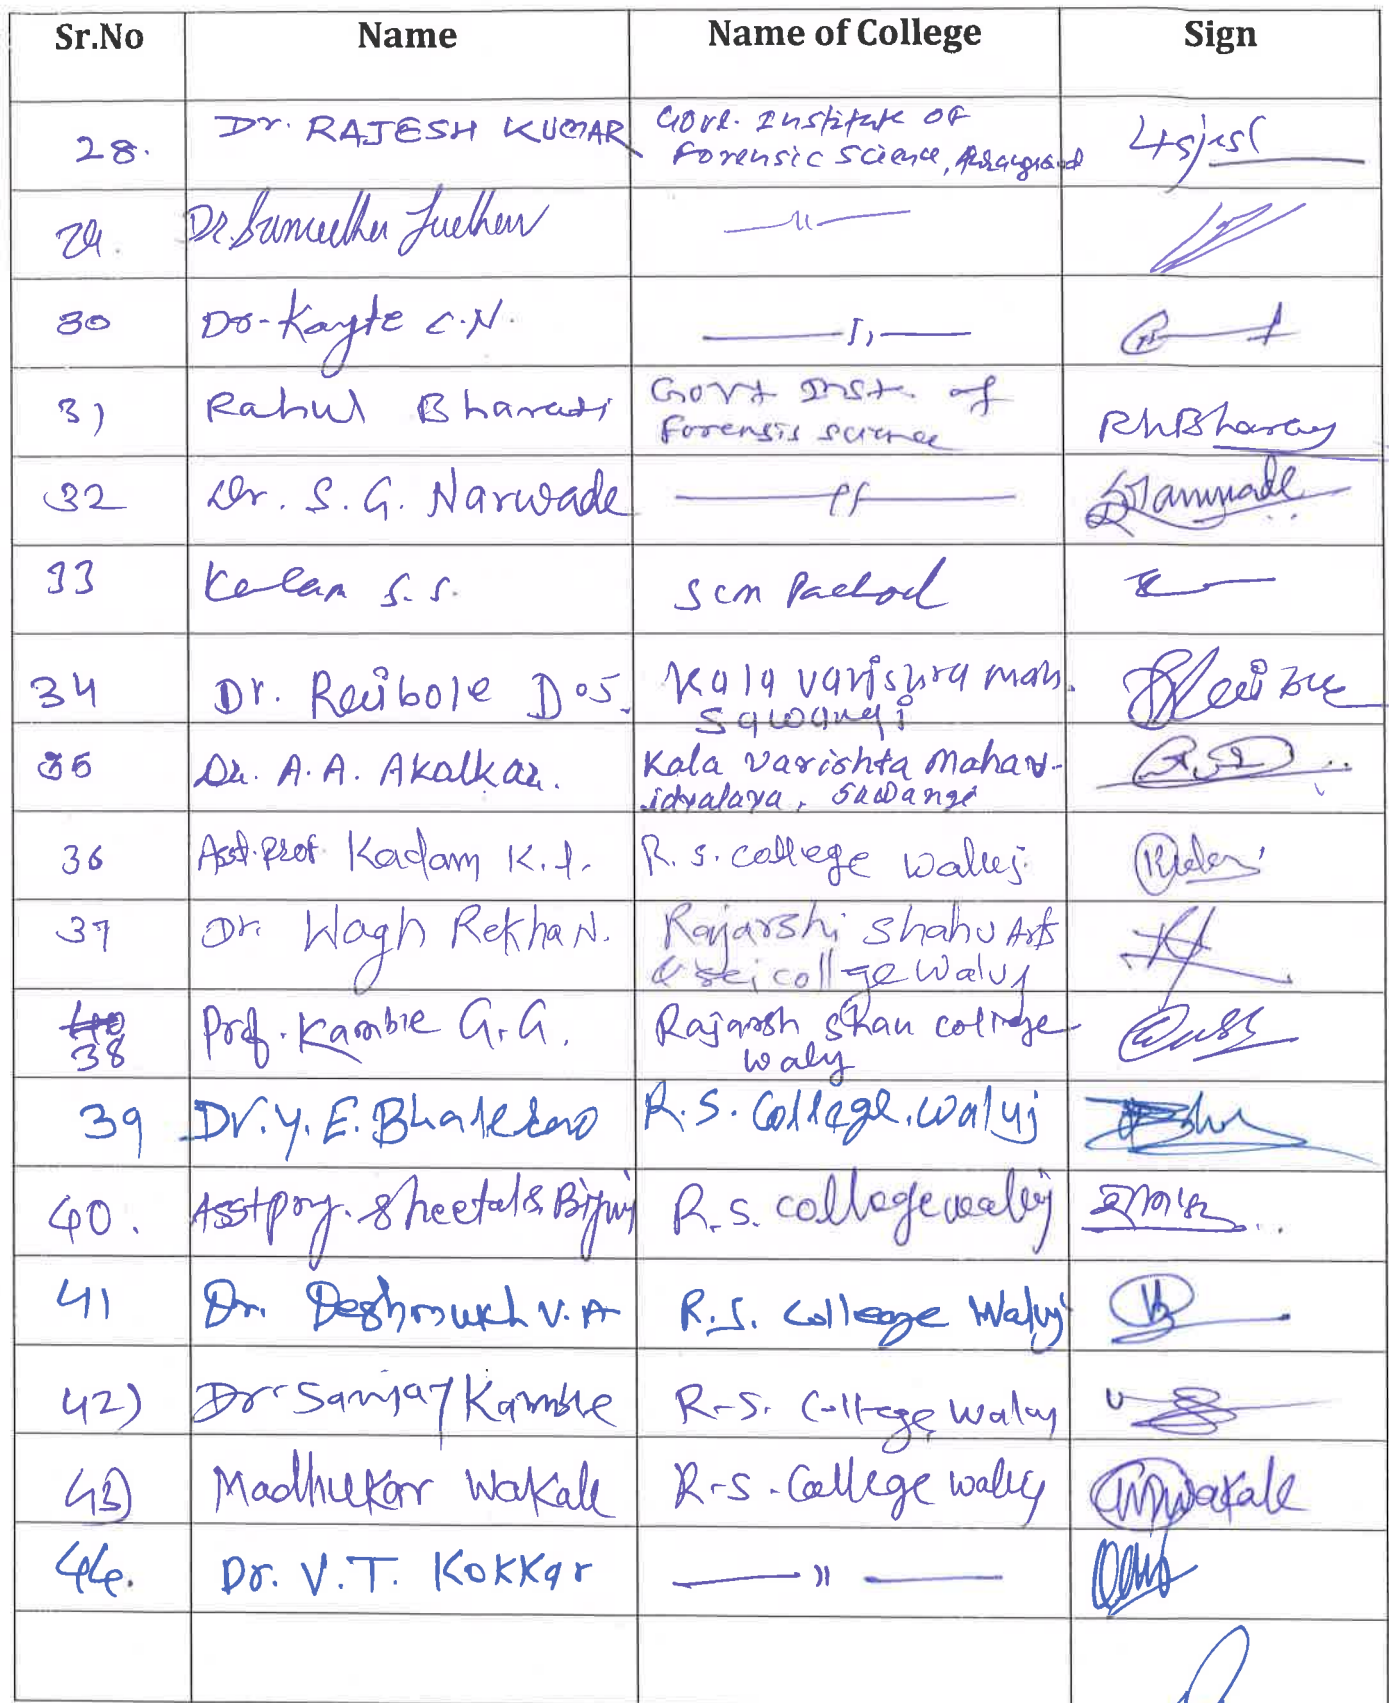 Sr.No Name Name of College Sign
28. Dr. RAJESH KUMAR Govt. Institute of
Forensic Science,
29. Dr.
30 Dr. Kayte C.N. —ıı—
31) Rahul Bharati Govt Inst. of
Forensis science RhBharay
32 Dr. S. G. Narwade —〃—
33 S. S. SCM Pachod
34 Dr. Reubole D.S. Kala varishra mah.
Sawangi
35 Dr. A. A. Akolkar. Kala varishta Mahav-
idyalaya, Sawangi
36 Asst. Prof Kadam K. R. S. college waluj.
37 Dr. Wagh Rekha N. Rajarshi Shahu Arts
& sci college waluj
38 Prof. Kamble G. G. Rajarsh Shau college
waluj
39 Dr. Y. E. Bhalerao R. S. College. waluj
40. Sheetal S. R. S. college waluj
41 Dr. Deshmukh V. A R. S. College Waluj
42) Dr. Sanjay Kamble R. S. College waluj
43) Madhukar Wakale R. S. College waluj Wakale
44. Dr. V. T. Kokkar —〃—